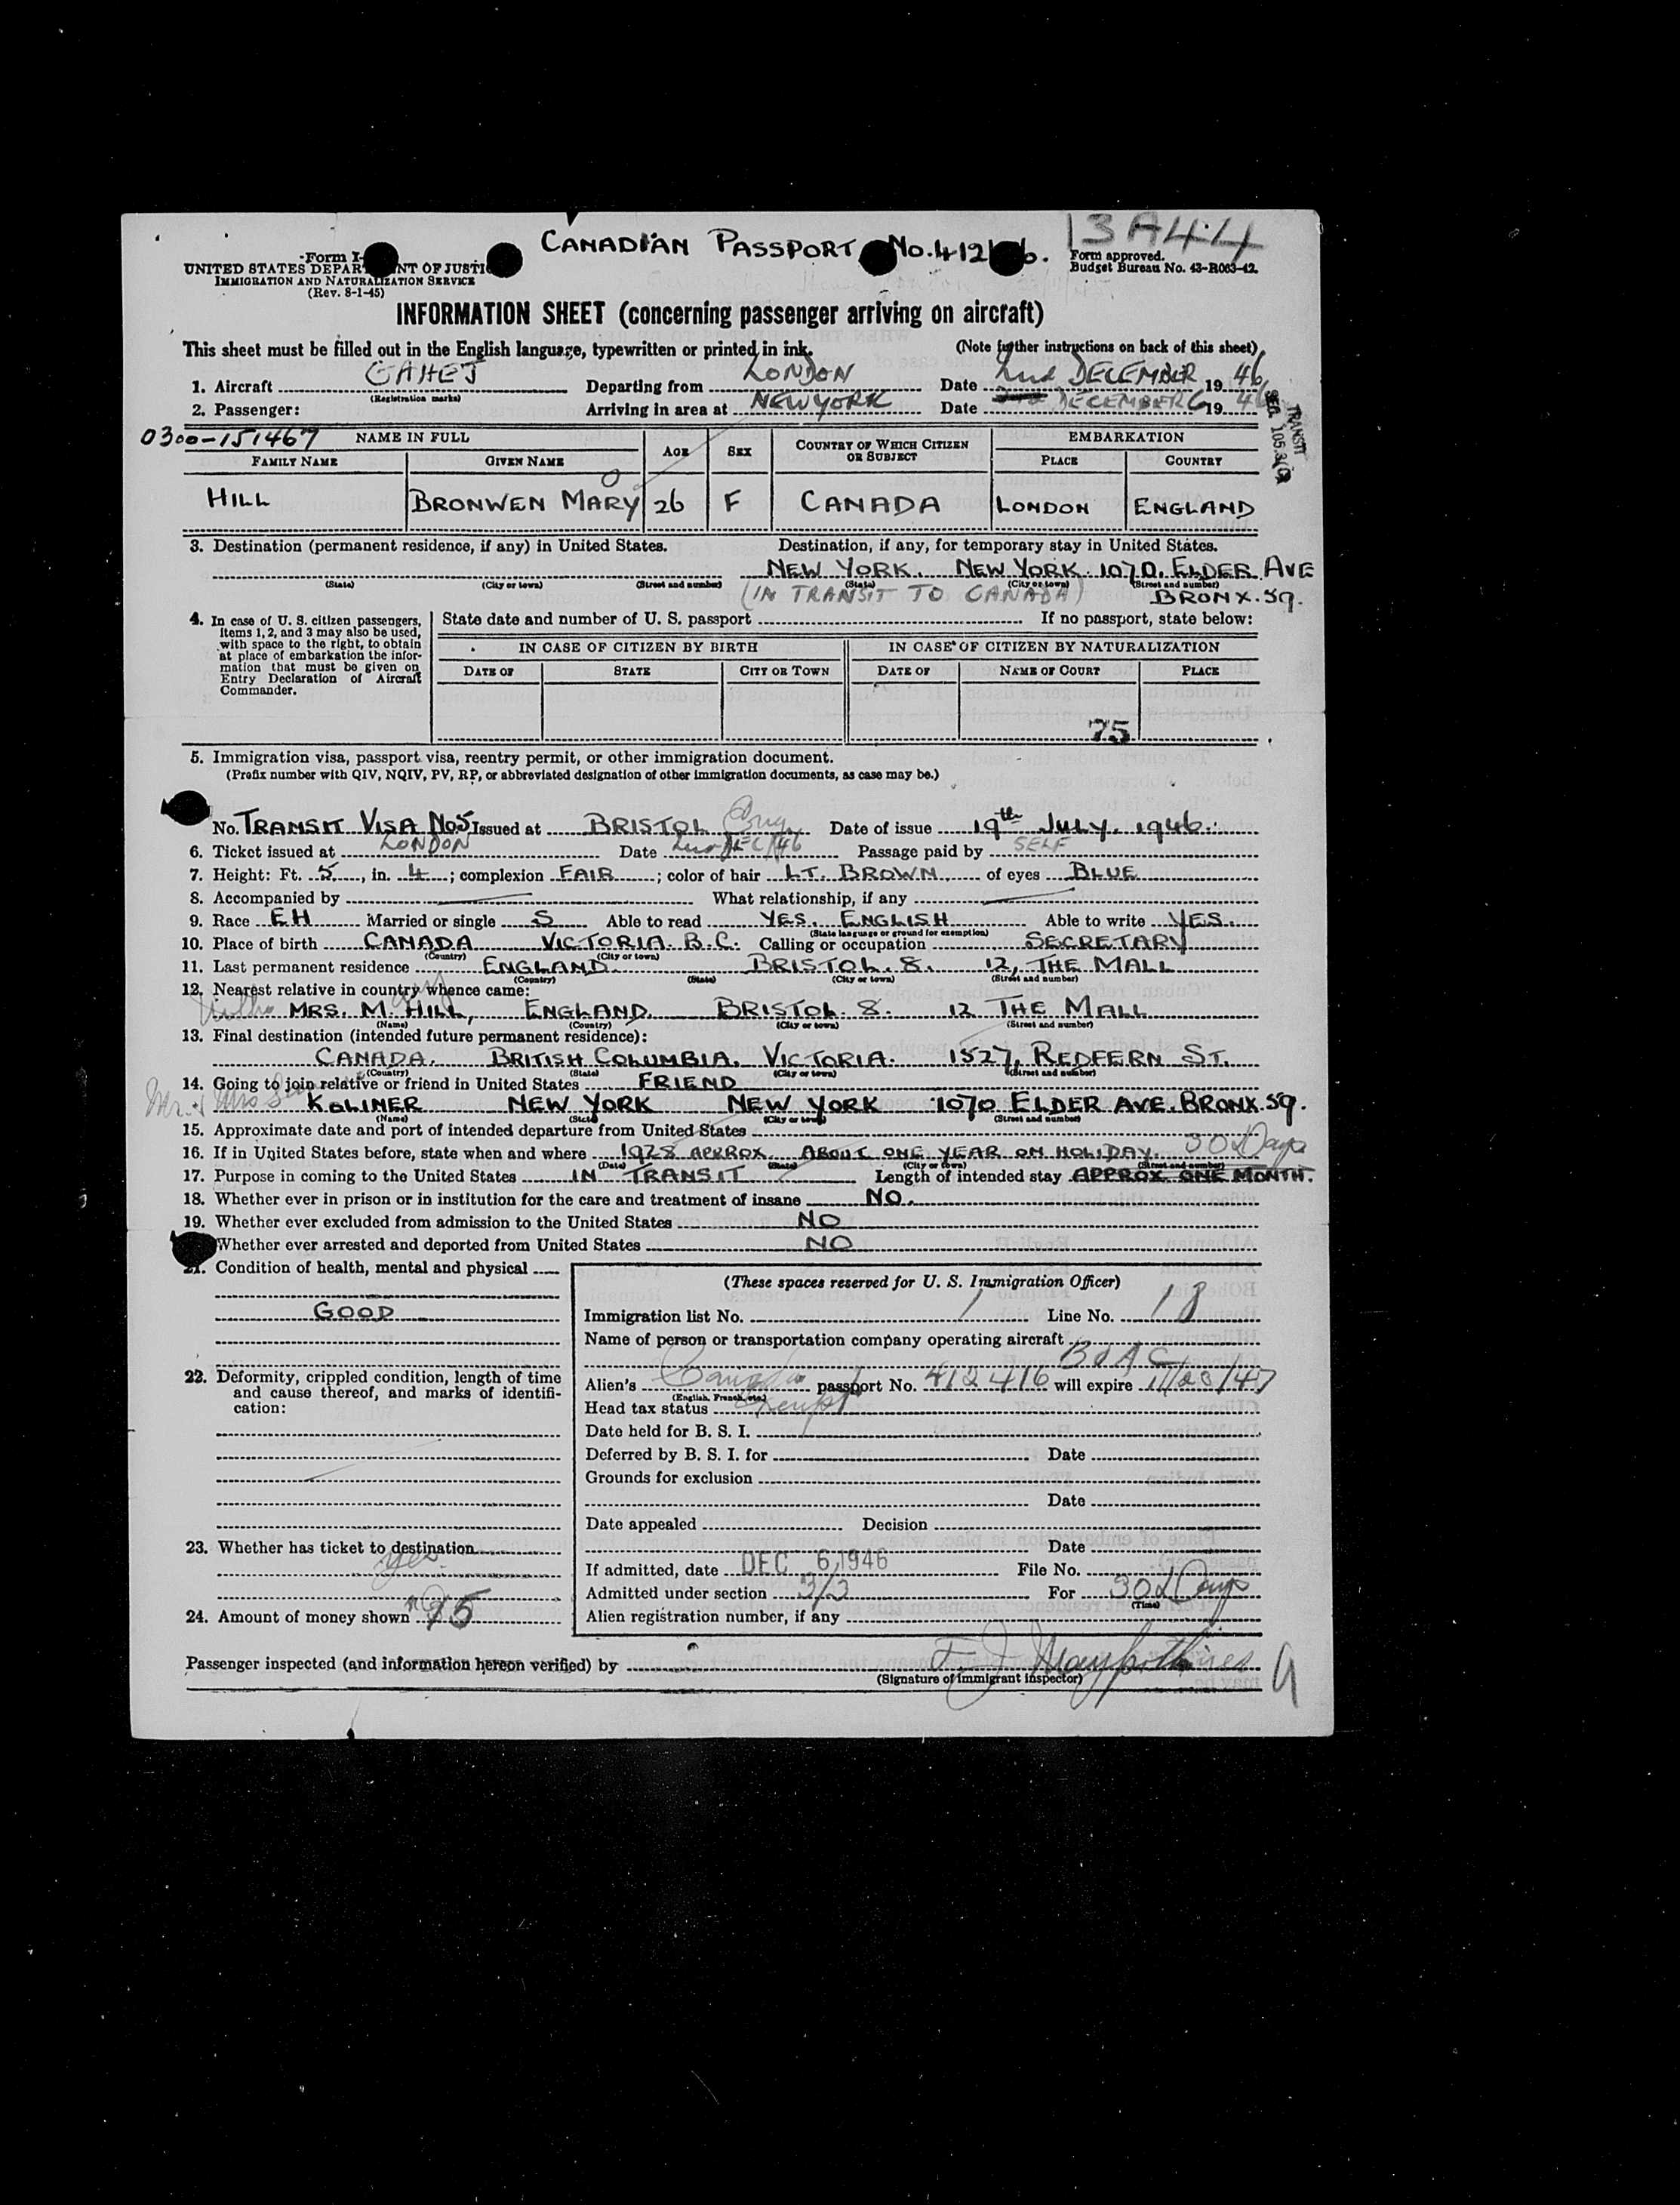 CANADIAN PASSPORT No. 412 6.
13A44
Form I-
UNITED STATES DEPAR NT OF JUSTI
IMMIGRATION AND NATURALIZATION SERVICE
(Rev. 8-1-45)
Form approved.
Budget Bureau No. 43-R063-42.
INFORMATION SHEET (concerning passenger arriving on aircraft)
This sheet must be filled out in the English language, typewritten or printed in ink. (Note further instructions on back of this sheet)
1. Aircraft GAHEJ Departing from LONDON Date 2nd DECEMBER 1946
(Registration marks)
2. Passenger: Arriving in area at NEW YORK Date DECEMBER 6 1946
TRANSIT
SEC. 105.3(
0300-151467 NAME IN FULL AGE SEX COUNTRY OF WHICH CITIZEN OR SUBJECT EMBARKATION
FAMILY NAME GIVEN NAME PLACE COUNTRY
HILL BRONWEN MARY 26 F CANADA LONDON ENGLAND
3. Destination (permanent residence, if any) in United States. Destination, if any, for temporary stay in United States.
NEW YORK. NEW YORK. 1070. ELDER AVE
(State) (City or town) (Street and number) (State) (City or town) (Street and number)
(IN TRANSIT TO CANADA) BRONX. 59.
4. In case of U. S. citizen passengers, items 1, 2, and 3 may also be used, with space to the right, to obtain at place of embarkation the information that must be given on Entry Declaration of Aircraft Commander.
State date and number of U. S. passport If no passport, state below:
IN CASE OF CITIZEN BY BIRTH IN CASE OF CITIZEN BY NATURALIZATION
DATE OF STATE CITY OR TOWN DATE OF NAME OF COURT PLACE
75
5. Immigration visa, passport visa, reentry permit, or other immigration document.
(Prefix number with QIV, NQIV, PV, RP, or abbreviated designation of other immigration documents, as case may be.)
No. TRANSIT VISA No5 Issued at BRISTOL Eng. Date of issue 19th JULY. 1946.
6. Ticket issued at LONDON Date 2nd DEC/46 Passage paid by SELF
7. Height: Ft. 5, in. 4; complexion FAIR; color of hair LT. BROWN of eyes BLUE
8. Accompanied by What relationship, if any
9. Race EH Married or single S Able to read YES. ENGLISH Able to write YES.
(State language or ground for exemption)
10. Place of birth CANADA VICTORIA. B.C. Calling or occupation SECRETARY
(Country) (City or town)
11. Last permanent residence ENGLAND. BRISTOL. 8. 12, THE MALL
(Country) (State) (City or town) (Street and number)
12. Nearest relative in country whence came:
Mother MRS. M. HILL, ENGLAND. BRISTOL. 8. 12 THE MALL
(Name) (Country) (City or town) (Street and number)
13. Final destination (intended future permanent residence):
CANADA. BRITISH COLUMBIA. VICTORIA. 1527, REDFERN ST.
(Country) (State) (City or town) (Street and number)
14. Going to join relative or friend in United States FRIEND
Mr. & Mrs KOLINER NEW YORK NEW YORK 1070 ELDER AVE. BRONX. 59.
(Name) (State) (City or town) (Street and number)
15. Approximate date and port of intended departure from United States 30 Days
16. If in United States before, state when and where 1928 APPROX ABOUT ONE YEAR ON HOLIDAY.
(Date) (State) (City or town) (Street and number)
17. Purpose in coming to the United States IN TRANSIT Length of intended stay APPROX ONE MONTH.
18. Whether ever in prison or in institution for the care and treatment of insane NO.
19. Whether ever excluded from admission to the United States NO
Whether ever arrested and deported from United States NO
21. Condition of health, mental and physical
GOOD
22. Deformity, crippled condition, length of time and cause thereof, and marks of identification:
23. Whether has ticket to destination
yes.
24. Amount of money shown 75
(These spaces reserved for U. S. Immigration Officer)
Immigration list No. 1 Line No. 18
Name of person or transportation company operating aircraft
BOAC
Alien's Canada passport No. 412416 will expire 11/23/47
(English, French, etc.)
Head tax status Exempt
Date held for B. S. I.
Deferred by B. S. I. for Date
Grounds for exclusion
Date
Date appealed Decision
Date
If admitted, date DEC 6 1946 File No.
Admitted under section 3/3 For 30 Days
(Time)
Alien registration number, if any
Passenger inspected (and information hereon verified) by
(Signature of immigrant inspector)